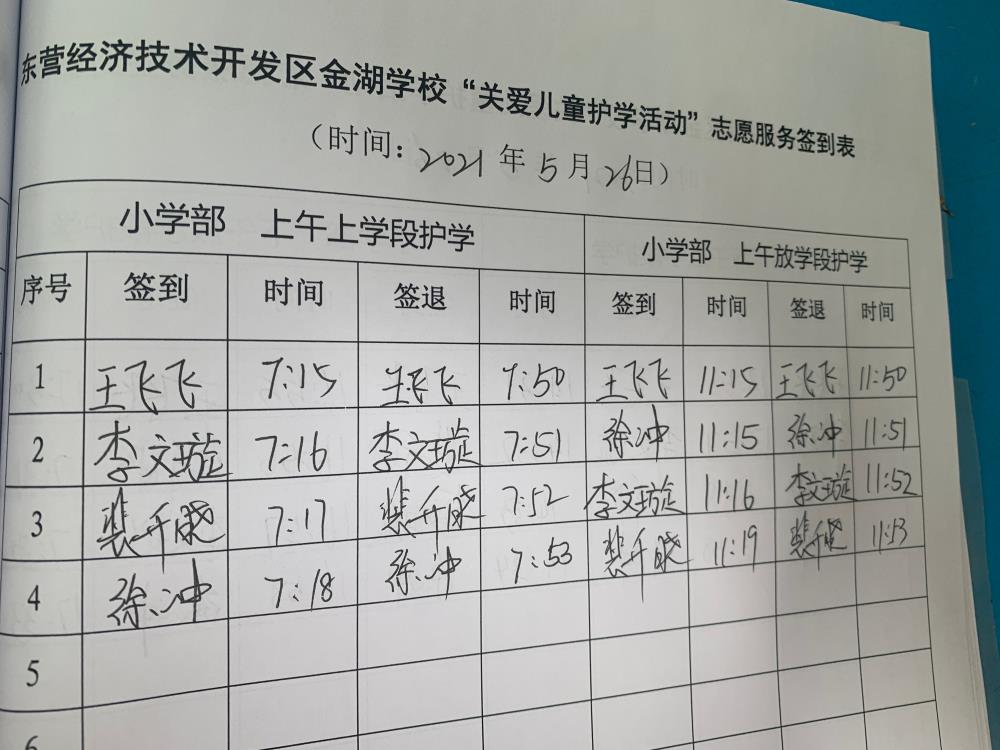 东营经济技术开发区金湖学校“关爱儿童护学活动”志愿服务签到表
（时间：2021年5月26日）
小学部 上午上学段护学 小学部 上午放学段护学
序号 签到 时间 签退 时间 签到 时间 签退 时间
1 王飞飞 7:15 王飞飞 7:50 王飞飞 11:15 王飞飞 11:50
2 李文璇 7:16 李文璇 7:51 徐冲 11:15 徐冲 11:51
3 裴千晓 7:17 裴千晓 7:52 李文璇 11:16 李文璇 11:52
4 徐冲 7:18 徐冲 7:53 裴千晓 11:19 裴千晓 11:13
5
6